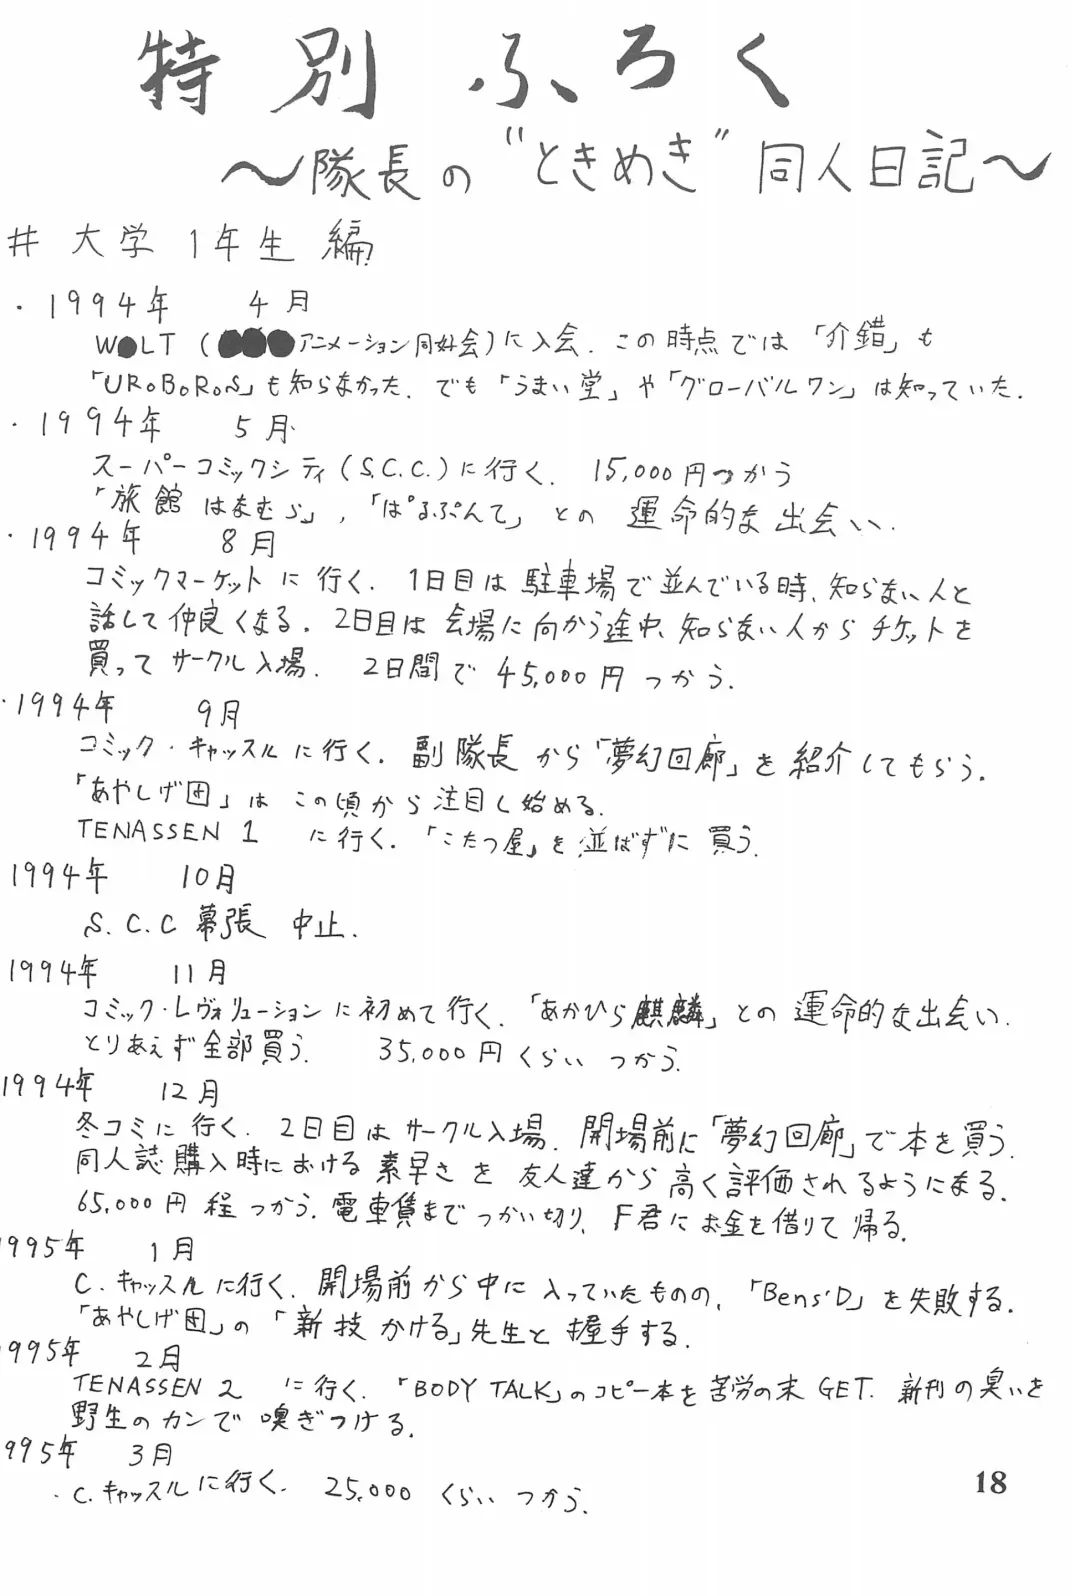 特別 ふろく
〜隊長の“ときめき”同人日記〜
# 大学 1年生 編
・1994年 4月
W●LT (●●●アニメーション同好会)に入会. この時点では「介錯」も
「UROBOROS」も知らなかった. でも「うまい堂」や「グローバルワン」は知っていた.
・1994年 5月
スーパーコミックシティ(S.C.C.)に行く. 15,000円つかう
「旅館はなむら」,「ぱるぷんて」との 運命的な出会い.
・1994年 8月
コミックマーケットに行く. 1日目は駐車場で並んでいる時、知らない人と
話して仲良くなる. 2日目は会場に向かう途中、知らない人からチケットを
買ってサークル入場. 2日間で45,000円つかう.
・1994年 9月
コミック・キャッスルに行く. 副隊長から「夢幻回廊」を紹介してもらう.
「あやしげ団」はこの頃から注目し始める.
TENASSEN 1 に行く.「こたつ屋」を並ばずに買う.
1994年 10月
S.C.C 幕張 中止.
1994年 11月
コミック・レヴォリューションに初めて行く.「あかひら麒麟」との運命的な出会い.
とりあえず全部買う. 35,000円くらいつかう.
1994年 12月
冬コミに行く. 2日目はサークル入場. 開場前に「夢幻回廊」で本を買う.
同人誌購入時における素早さを友人達から高く評価されるようになる.
65,000円程つかう. 電車賃までつかい切り、F君にお金を借りて帰る.
1995年 1月
C.キャッスルに行く. 開場前から中に入っていたものの、「Bens'D」を失敗する.
「あやしげ団」の「新技かける」先生と握手する.
1995年 2月
TENASSEN 2 に行く.「BODY TALK」のコピー本を苦労の末GET. 新刊の臭いを
野生のカンで嗅ぎつける.
995年 3月
・C.キャッスルに行く. 25,000くらいつかう.
18